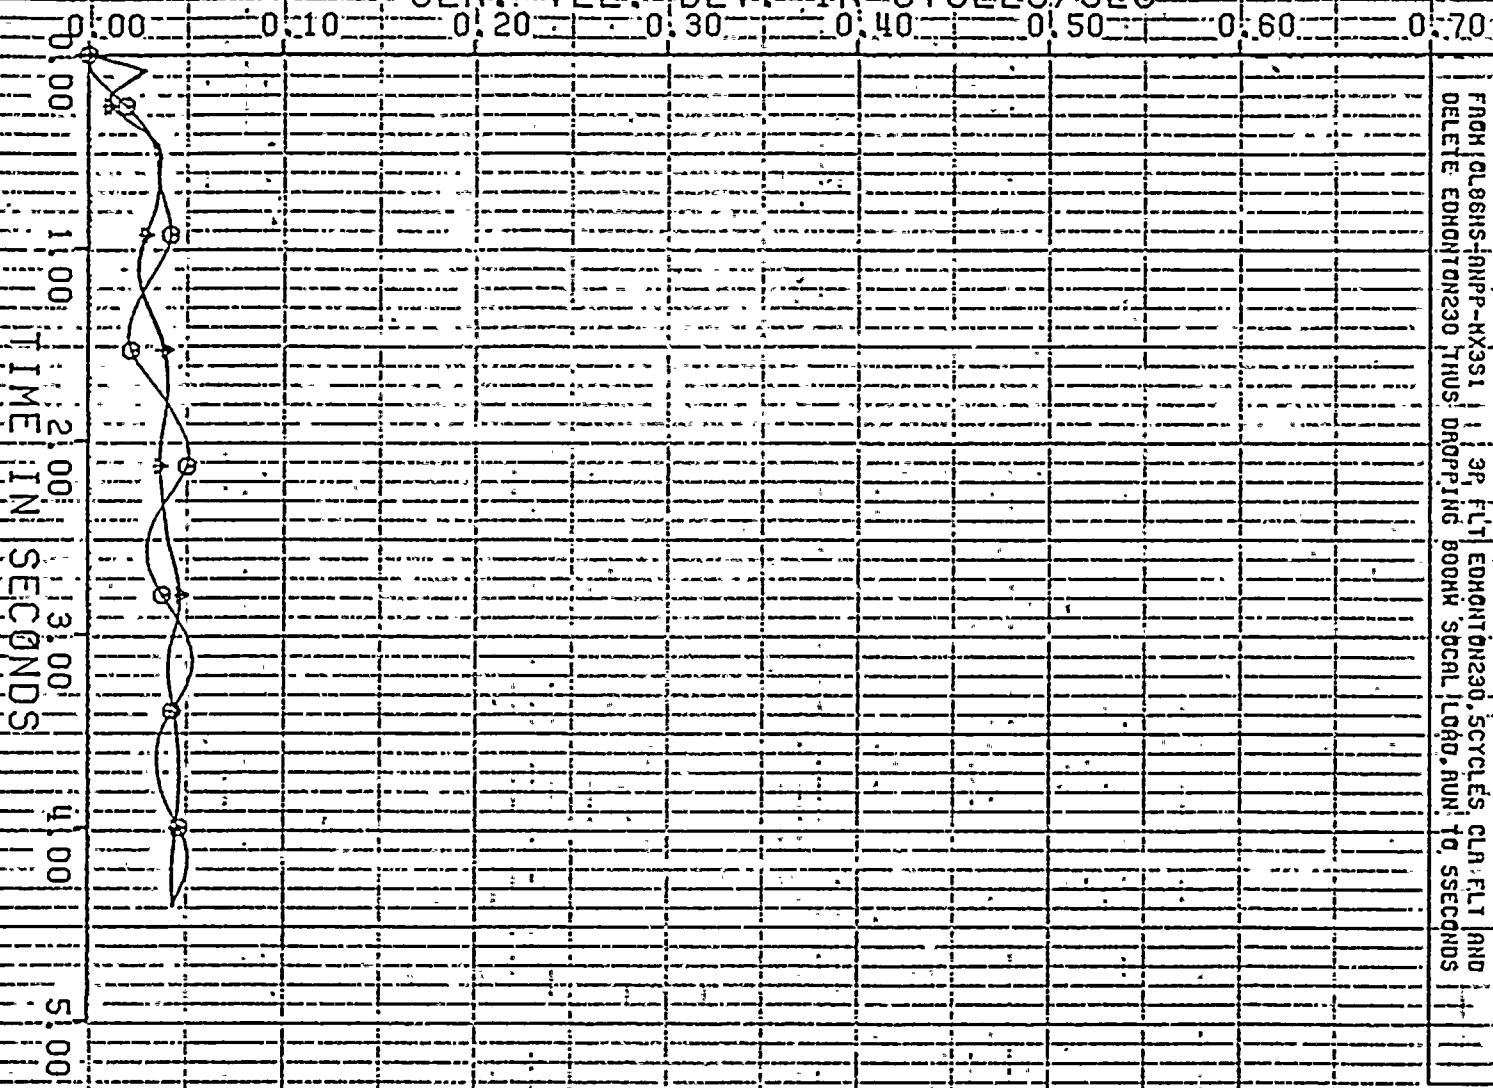 0.00 0.10 0.20 0.30 0.40 0.50 0.60 0.70
FROM CL86HS-ANPP-MX3S1 3P FLT EDMONTON230, 5CYCLES CLR FLT AND
DELETE EDMONTON230 THUS DROPPING 800MW SOCAL LOAD, RUN TO 5SECONDS
0.00 1.00 2.00 3.00 4.00 5.00
TIME IN SECONDS